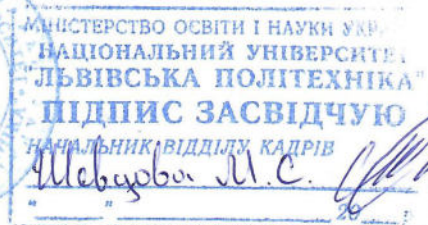 МІНІСТЕРСТВО ОСВІТИ І НАУКИ УКР
НАЦІОНАЛЬНИЙ УНІВЕРСИТЕ
"ЛЬВІВСЬКА ПОЛІТЕХНІКА"
ПІДПИС ЗАСВІДЧУЮ
НАЧАЛЬНИК ВІДДІЛУ КАДРІВ
Шевцова М.С.
" " 20